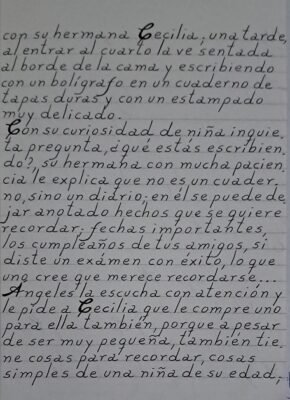 con su hermana Cecilia; una tarde,
al entrar al cuarto la ve sentada
al borde de la cama y escribiendo
con un bolígrafo en un cuaderno de
tapas duras y con un estampado
muy delicado.
Con su curiosidad de niña inquie_
ta pregunta, ¿qué estás escribien_
do?, su hermana con mucha pacien_
cia le explica que no es un cuader_
no, sino un diario; en él se puede de_
jar anotado hechos que se quiere
recordar; fechas importantes,
los cumpleaños de tus amigos, si
diste un exámen con éxito, lo que
uno cree que merece recordarse...
Angeles la escucha con atención y
le pide a Cecilia que le compre uno
para ella también, porque a pesar
de ser muy pequeña, también tie_
ne cosas para recordar, cosas
simples de una niña de su edad;